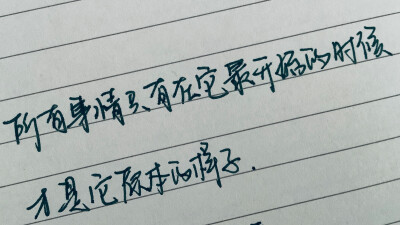 所有事情只有在它最开始的时候
才是它原本的样子.